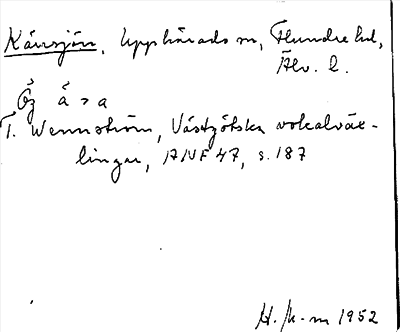 Kärrsjön, Upphärads sn, Flundre hd,
Älv. l.
Ög á > a
T. Wennström, Västgötska vokalväx-
lingar, ANF 47, s. 187
H. 1952